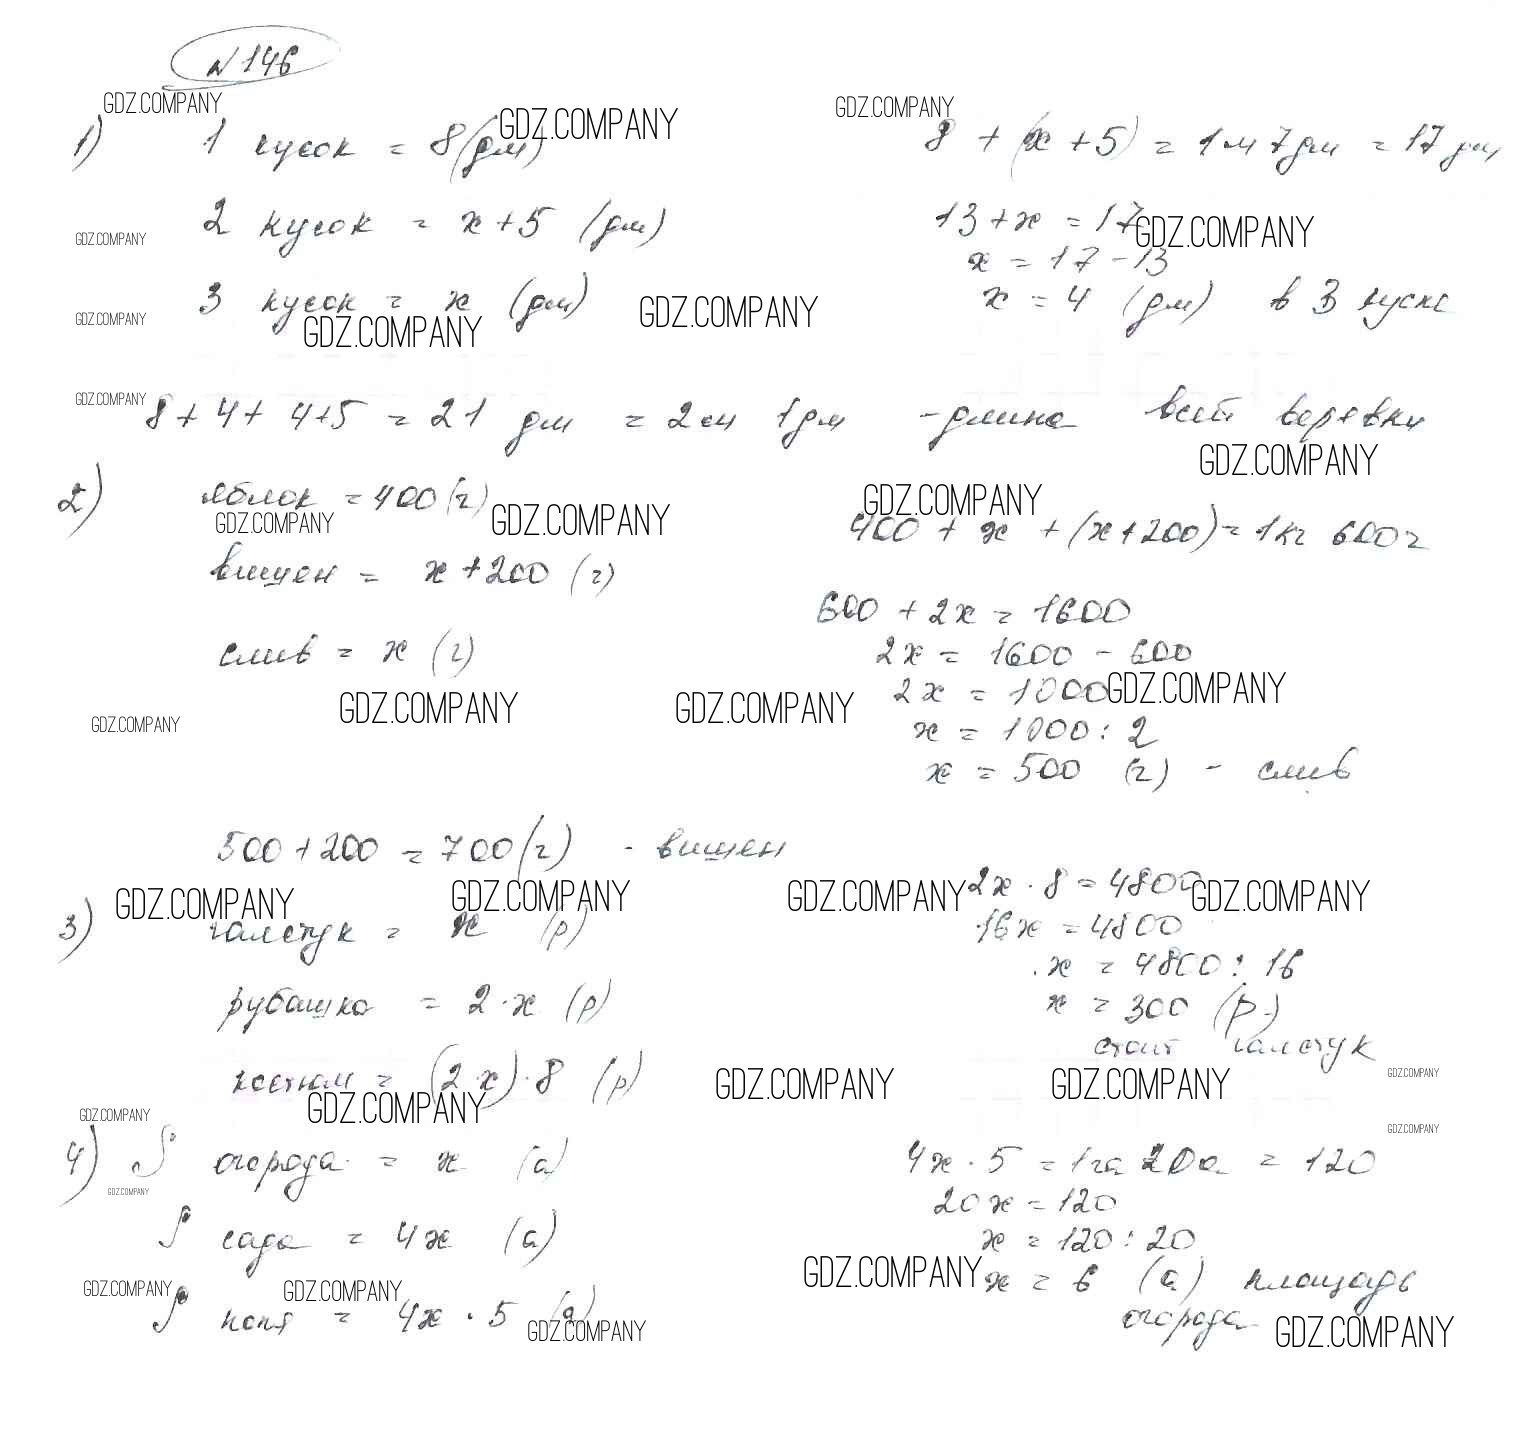 N 146
GDZ.COMPANY
GDZ.COMPANY
GDZ.COMPANY
1) 1 кусок = 8 (дм)
8 + (x + 5) = 1 м 7 дм = 17 дм
GDZ.COMPANY
2 кусок = x + 5 (дм)
13 + x = 17
GDZ.COMPANY
x = 17 - 13
GDZ.COMPANY
3 кусок = x (дм)
GDZ.COMPANY
GDZ.COMPANY
x = 4 (дм) в 3 куске
GDZ.COMPANY
8 + 4 + 4 + 5 = 21 дм = 2 м 1 дм - длина всей веревки
GDZ.COMPANY
2) яблок = 400 (г)
GDZ.COMPANY
GDZ.COMPANY
GDZ.COMPANY
400 + x + (x + 200) = 1 кг 600 г
вишен = x + 200 (г)
600 + 2x = 1600
слив = x (г)
2x = 1600 - 600
2x = 1000
GDZ.COMPANY
GDZ.COMPANY
GDZ.COMPANY
GDZ.COMPANY
x = 1000 : 2
x = 500 (г) - слив
500 + 200 = 700 (г) - вишен
2x · 8 = 4800
GDZ.COMPANY
GDZ.COMPANY
GDZ.COMPANY
GDZ.COMPANY
3) галстук = x (р)
16x = 4800
x = 4800 : 16
рубашка = 2 · x (р)
x = 300 (р.)
стоит галстук
костюм = (2 · x) · 8 (р)
GDZ.COMPANY
GDZ.COMPANY
GDZ.COMPANY
GDZ.COMPANY
GDZ.COMPANY
GDZ.COMPANY
4) S огорода = x (а)
4x · 5 = 1 га 20 а = 120
GDZ.COMPANY
20x = 120
S сада = 4x (а)
x = 120 : 20
GDZ.COMPANY
x = 6 (а) площадь
огорода
GDZ.COMPANY
GDZ.COMPANY
S поля = 4x · 5 (а)
GDZ.COMPANY
GDZ.COMPANY